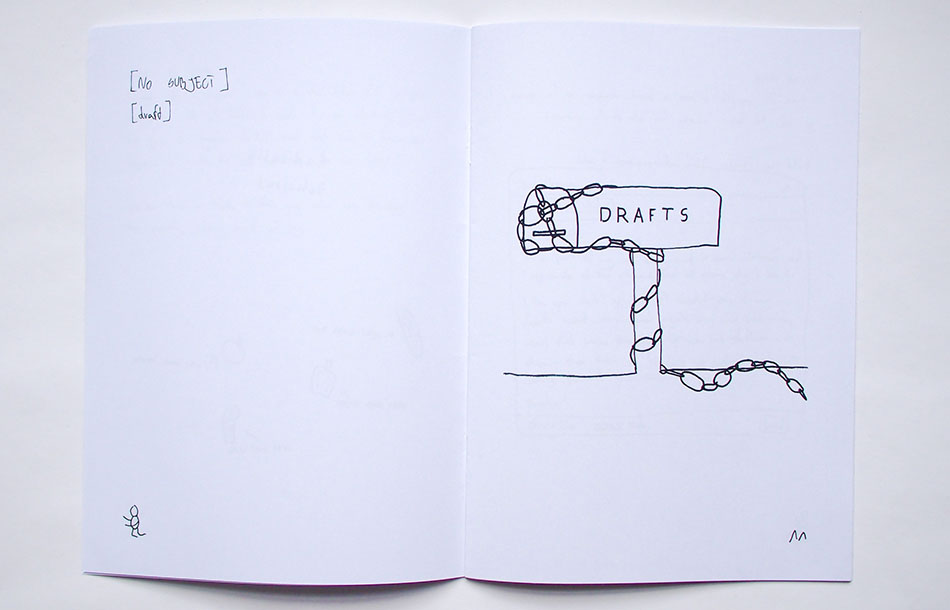 [NO SUBJECT]
[draft]
DRAFTS